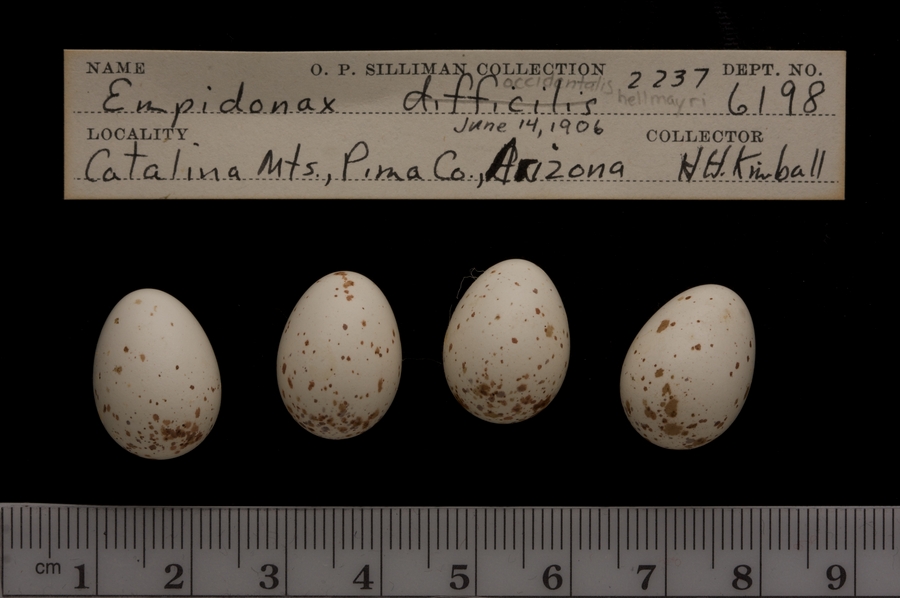 NAME O. P. SILLIMAN COLLECTION 2237 DEPT. NO.
occidentalis
Empidonax difficilis hellmayri 6198
LOCALITY June 14, 1906 COLLECTOR
Catalina Mts., Pima Co., Arizona H.H. Kimball
cm 1 2 3 4 5 6 7 8 9